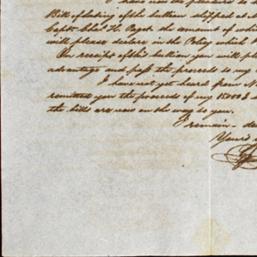 I have now the pleasure to
Bill of lading of the bullion shipped at
Captn Chas H. the amount of whi
will please declare in the Policy which
On receipt of this bullion you will p
advantage and pass the proceeds to my
I have not yet heard from
remitted you the proceeds of my
the bills are now on the way to you.
I remain
Yours